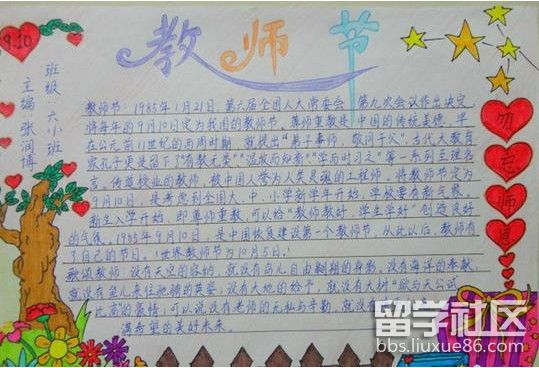 9.10
教师节
班级：六小班
主编：张润博
教师节，1985年1月21日，第六届全国人大常委会第九次会议作出决定，
将每年的9月10日定为我国的教师节。尊师重教是中国的优良传统，早
在公元前11世纪的西周时期，就提出"弟子事师，敬同于父"，古代大教育
家孔子更是留下了"有教无类""温故而知新""学而时习之"等一系列至理名
言。传道授业的教师，被中国人誉为人类灵魂的工程师。将教师节定为
9月10日，是考虑到全国大、中、小学新学年开始，学校要有新气象。
新生入学开始，即尊师重教，可以给"教师教好，学生学好"创造良好
的气氛。1985年9月10日，是中国恢复建设第一个教师节，从此以后，教师有
了自己的节日。(世界教师节为10月5日。)
歌颂教师，没有天空的容纳，就没有鸟儿自由翱翔的身影，没有海洋的奉献，
就没有鱼儿来往驰骋的英姿，没有大地的给予，就没有大树欲与天公试
比高的豪情，可以说没有老师的无私与辛勤，就没有
满希望的美好未来。
勿忘师恩
留学社区
bbs.liuxue86.com